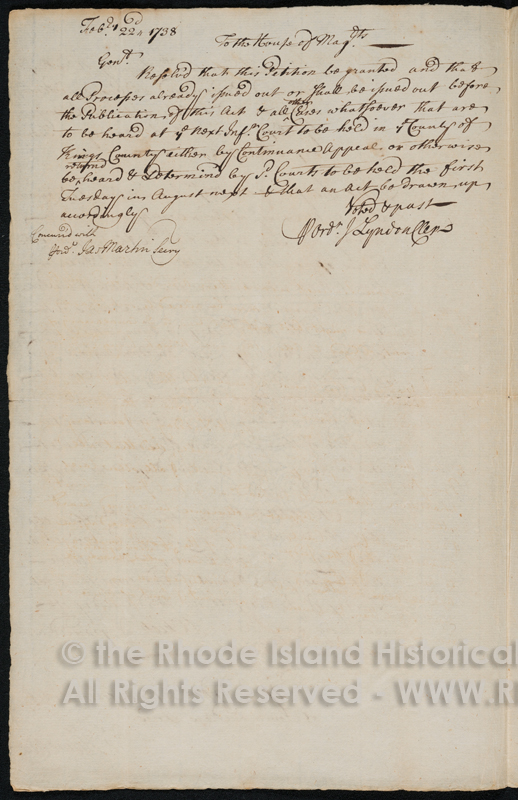 Febry 22d 1738
To the House of Magts
Gentn
Resolv'd that this Petition be granted and that
all Processes already issued out or Shall be issued out before
the Publication of this Act & all other Cases whatsoever that are
to be heard at ye next Infr Court to be held in ye County of
Kings County either by Continuance Appeal or otherwise
be refered heard & Determined by sd Courts to be held the first
Tuesday in August next & that an Act be drawn up
accordingly
Voted & past
P Ordr J Lyndon Cler
Concurrd with
Jas Martin Secry
© the Rhode Island Historical
All Rights Reserved - WWW.R